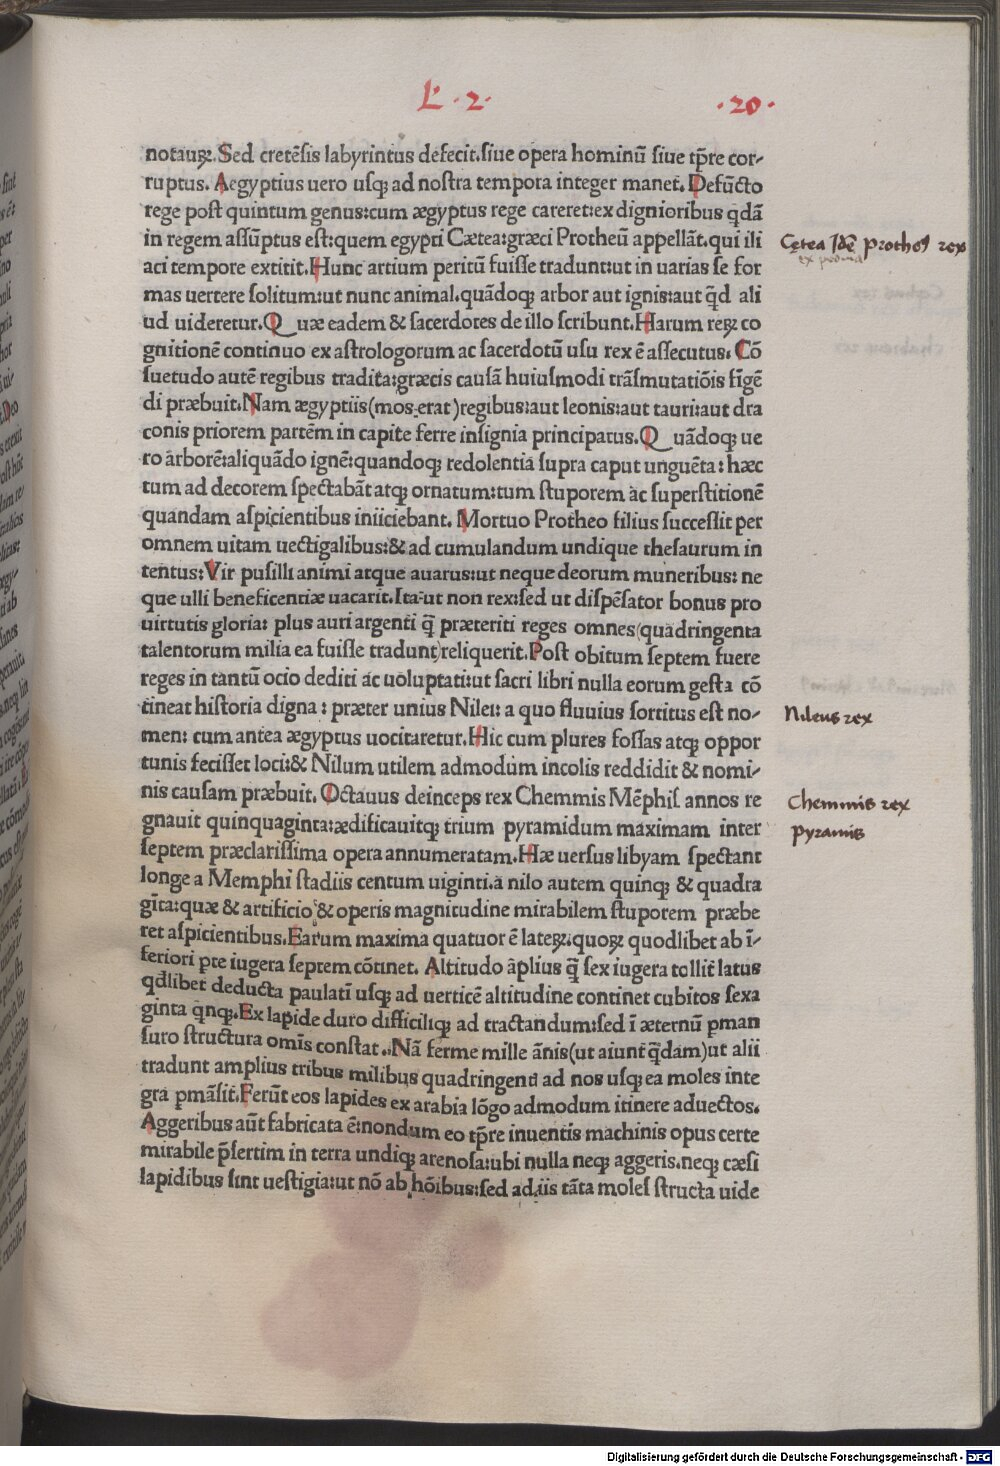 L. .2. .20.
notauꝝ. Sed cretēsis labyrintus defecit. siue opera hominū siue tp̄re cor-
ruptus. Aegyptius uero usq; ad nostra tempora integer manet. Defūcto
rege post quintum genus: cum ægyptus rege careret: ex dignioribus qdā
in regem assūptus est: quem egypti Cætea: græci Protheū appellāt. qui ili
aci tempore extitit. Hunc artium peritū fuisse tradunt: ut in uarias se for
mas uertere solitum: ut nunc animal. quādoq; arbor aut ignis: aut q̄d ali
ud uideretur. Quæ eadem & sacerdotes de illo scribunt. Harum reꝝ co
gnitionē continuo ex astrologorum ac sacerdotū usu rex ē assecutus. Cō
suetudo autē regibus tradita: græcis causā huiusmodi trāsmutatiōis fīgē
di præbuit. Nam ægyptiis (mos erat) regibus: aut leonis: aut tauri: aut dra
conis priorem partēm in capite ferre insignia principatus. Quādoq; ue
ro arborē: aliquādo ignē: quandoq; redolentia supra caput unguēta: hæc
tum ad decorem spectabāt atq; ornatum: tum stuporem ac superstitionē
quandam aspicientibus iniiciebant. Mortuo Protheo filius successit per
omnem uitam uectigalibus: & ad cumulandum undique thesaurum in
tentus: Vir pusilli animi atque auarus: ut neque deorum muneribus: ne
que ulli beneficentiæ uacarit. Ita ut non rex: sed ut dispēsator bonus pro
uirtutis gloria: plus auri argenti q̄ præteriti reges omnes (quadringenta
talentorum milia ea fuisse tradunt) reliquerit. Post obitum septem fuere
reges in tantū ocio dediti ac uoluptati: ut sacri libri nulla eorum gesta cō
tineat historia digna: præter unius Nilei: a quo fluuius sortitus est no-
men: cum antea ægyptus uocitaretur. Hic cum plures fossas atq; oppor
tunis fecisset loci: & Nilum utilem admodum incolis reddidit & nomi-
nis causam præbuit. Octauus deinceps rex Chemmis Mēphis annos re
gnauit quinquaginta: ædificauitq; trium pyramidum maximam inter
septem præclarissima opera annumeratam. Hæ uersus libyam spectant
longe a Memphi stadiis centum uiginti. a nilo autem quinq; & quadra
gīta: quæ & artificio & operis magnitudine mirabilem stuporem præbe
ret aspicientibus. Earum maxima quatuor ē lateꝝ. quoꝝ quodlibet ab ī-
feriori pte iugera septem cōtinet. Altitudo āplius q̄ sex iugera tollit latus
qdlibet deducta paulatī usq; ad uerticē altitudine continet cubitos sexa
ginta qnq;. Ex lapide duro difficiliq; ad tractandum: sed ī æternū pman
suro structura omīs constat. Nā ferme mille ānis (ut aiunt q̄dam) ut alii
tradunt amplius tribus milibus quadringenti ad nos usq; ea moles inte
gra pmāsit. Ferūt eos lapides ex arabia lōgo admodum itinere aduectos.
Aggeribus aūt fabricata ē: nondum eo tp̄re inuentis machinis opus certe
mirabile p̄sertim in terra undiq; arenosa: ubi nulla neq; aggeris. neq; cæsi
lapidibus sint uestigia: ut nō ab hōibus: sed adiis tāta moles structa uide
Cętea Idē protheꝰ rex
Nileus rex
Chemmis rex
pyramis
Digitalisierung gefördert durch die Deutsche Forschungsgemeinschaft - DFG